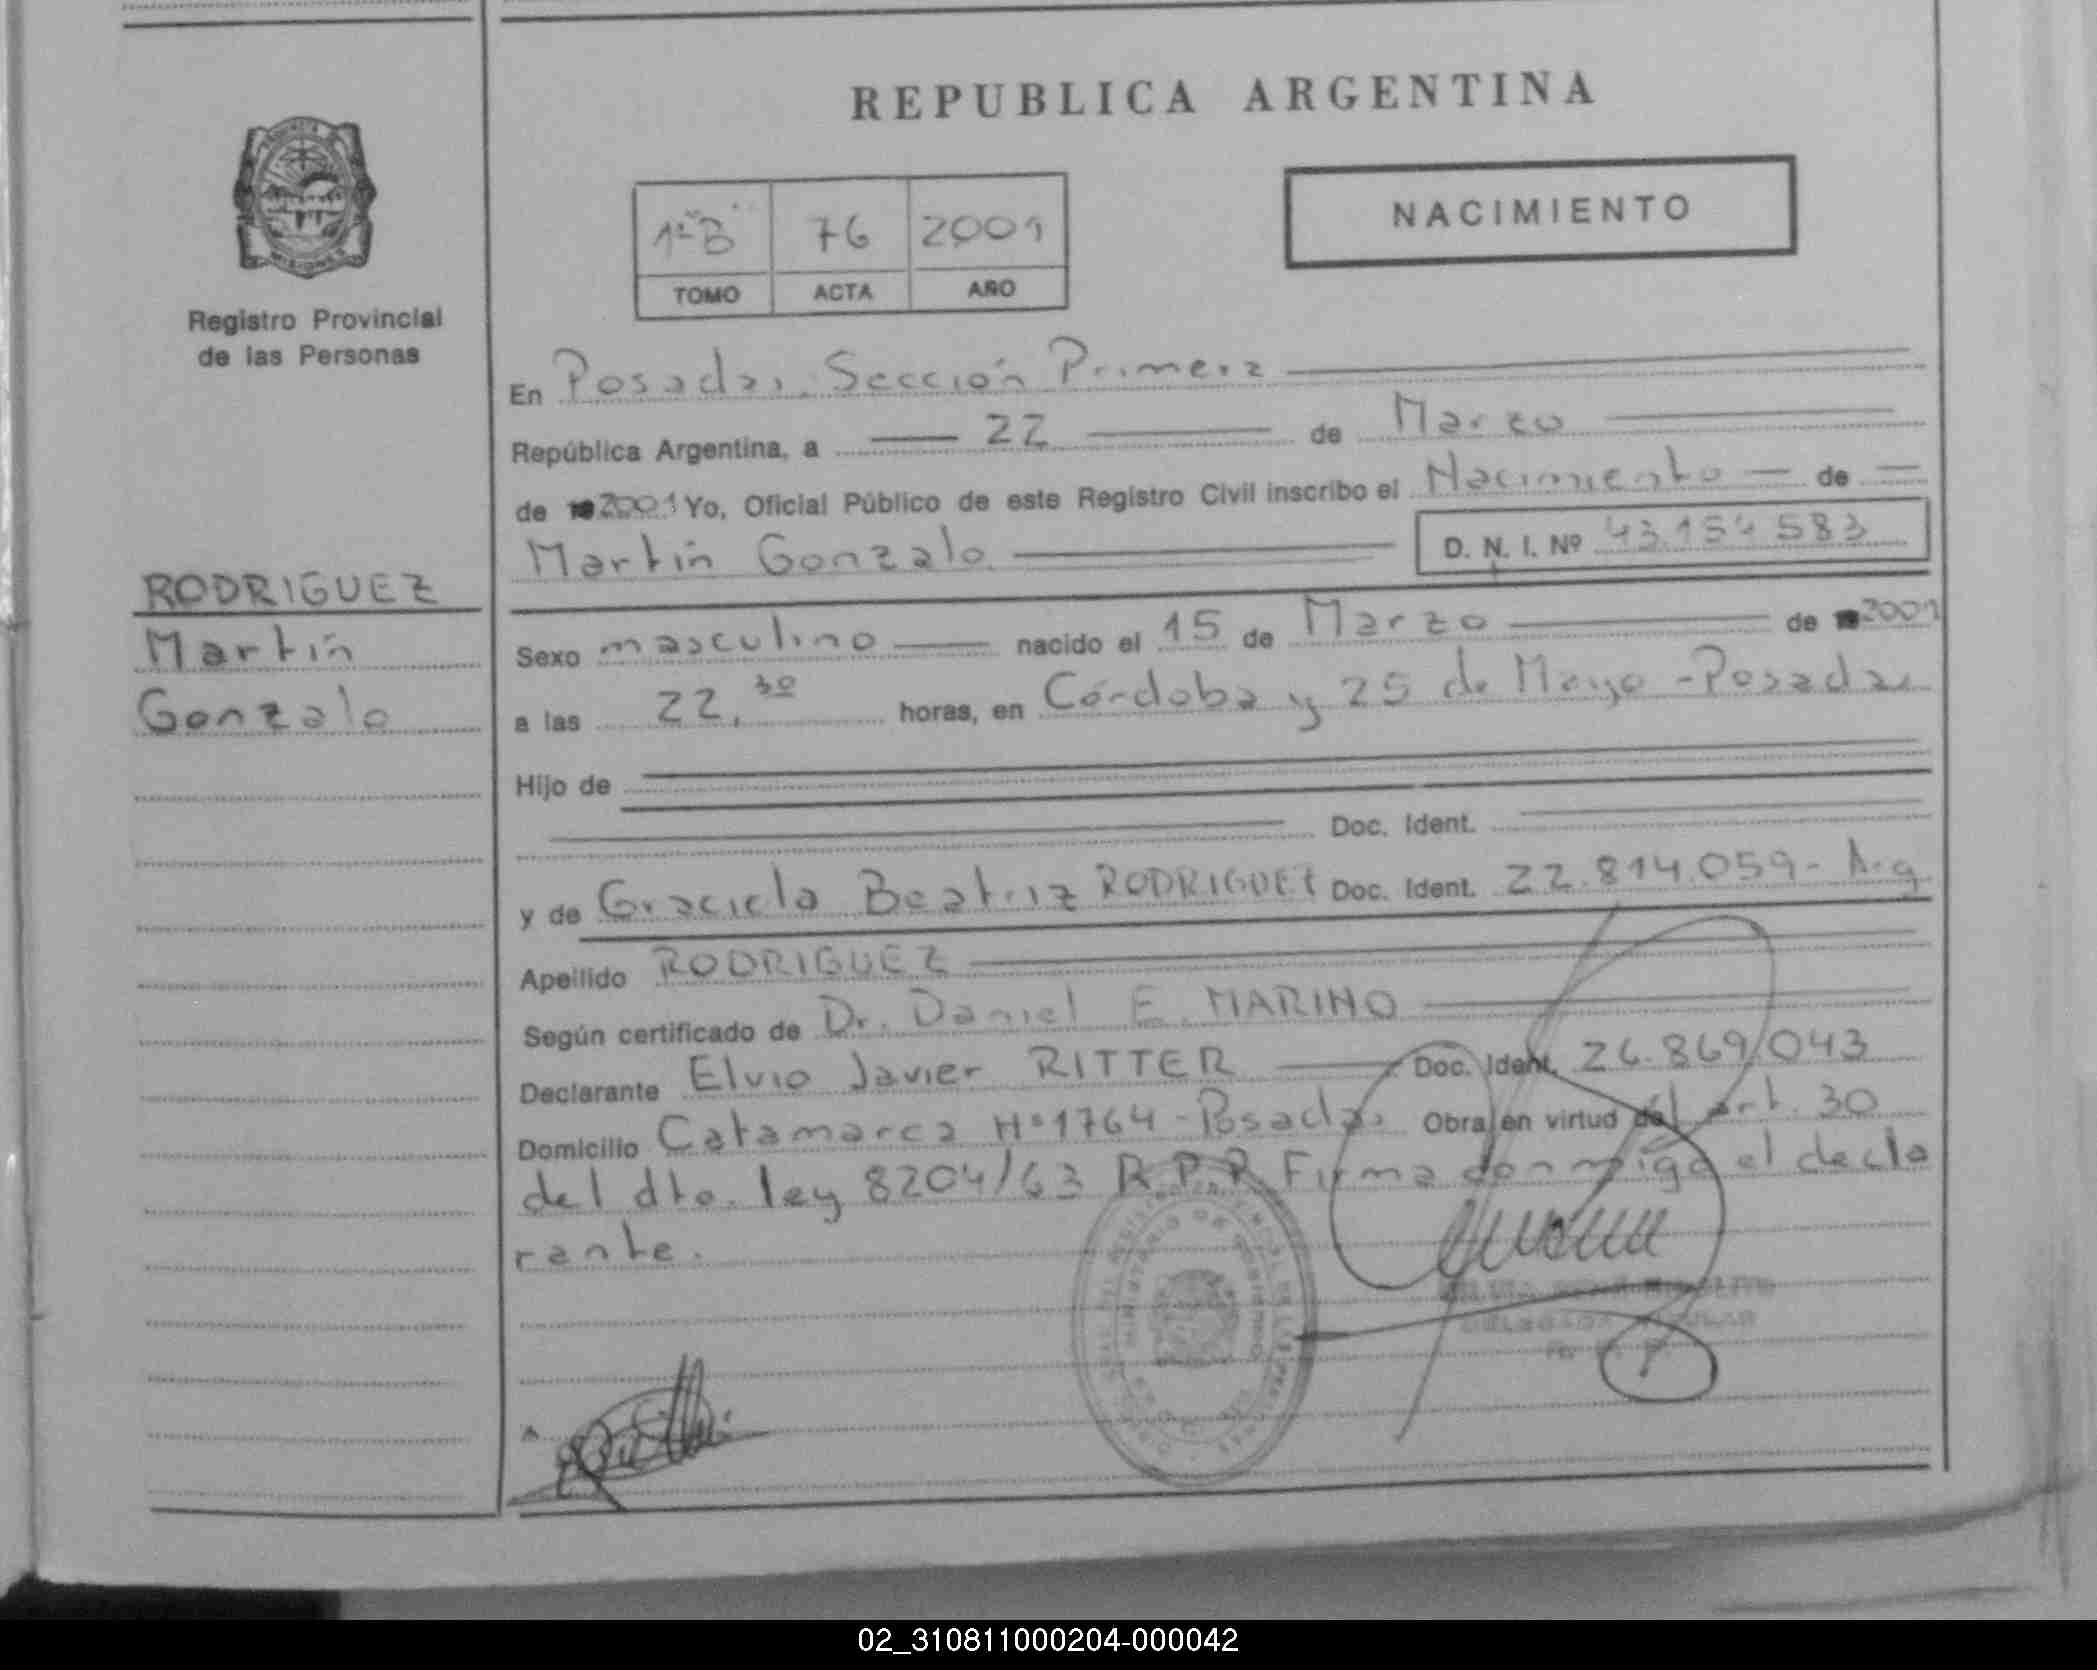 REPUBLICA ARGENTINA
NACIMIENTO
1ºB 76 2001
TOMO ACTA AÑO
Registro Provincial
de las Personas
En Posadas, Sección Primera
República Argentina, a 22 de Marzo
de 2001 Yo, Oficial Público de este Registro Civil inscribo el Nacimiento de
Martín Gonzalo D. N. I. Nº 43.154.583
RODRIGUEZ
Martín
Gonzalo
Sexo masculino nacido el 15 de Marzo de 2001
a las 22,30 horas, en Córdoba y 25 de Mayo - Posadas
Hijo de
Doc. Ident.
y de Graciela Beatriz RODRIGUEZ Doc. Ident. 22.814.059- Arg
Apellido RODRIGUEZ
Según certificado de Dr. Daniel E. MARINO
Declarante Elvio Javier RITTER Doc. Ident. 26.869.043
Domicilio Catamarca Nº1764 - Posadas Obra en virtud del art. 30
del dto. ley 8204/63 R.P.P. Firma conmigo el decla
rante.
02_310811000204-000042